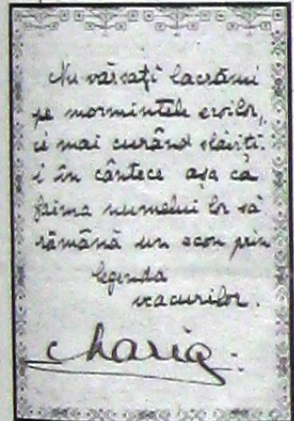 Nu vărsați lacrămi
pe mormintele eroilor,
ci mai curând slăviți-
i în cântece așa că
faima numelui lor să
rămână un ecou prin
legenda
veacurilor.
Maria